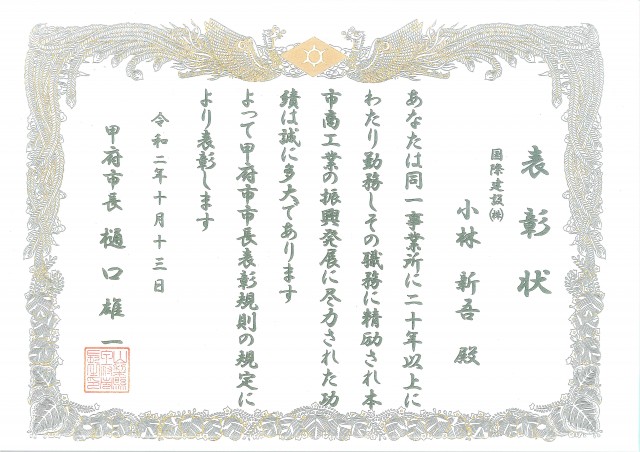 表彰状
国際建設㈱
小林 新吾 殿
あなたは同一事業所に二十年以上に
わたり勤務しその職務に精励され本
市商工業の振興発展に尽力された功
績は誠に多大であります
よって甲府市市長表彰規則の規定に
より表彰します
令和二年十月十三日
甲府市長 樋口雄一